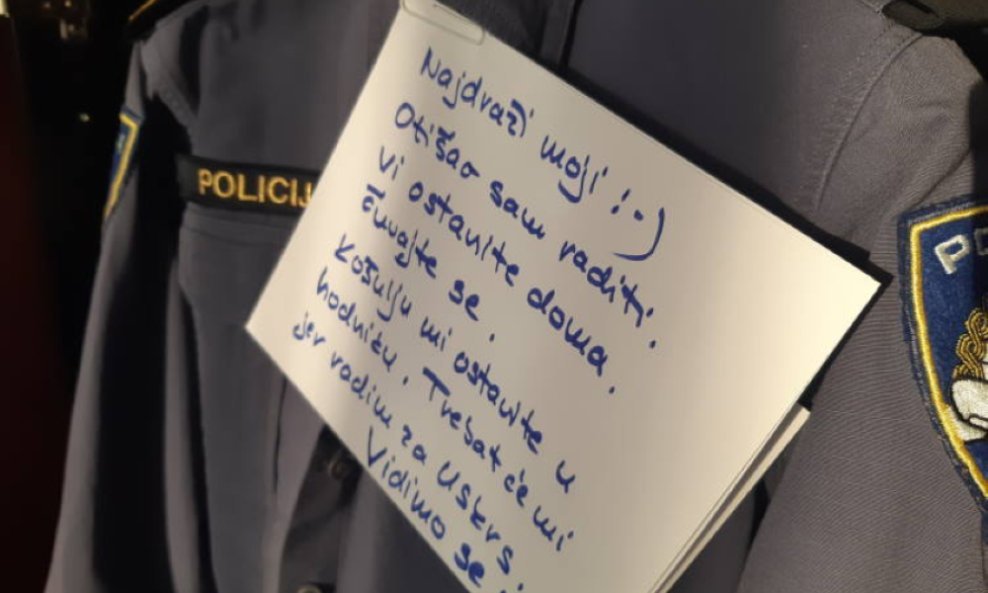 POLICIJ
Najdraži moji :-)
Otišao sam raditi.
Vi ostanite doma.
Čuvajte se.
Košulju mi ostavite u
hodniku. Trebat će mi
jer radim za Uskrs.
Vidimo se
PO